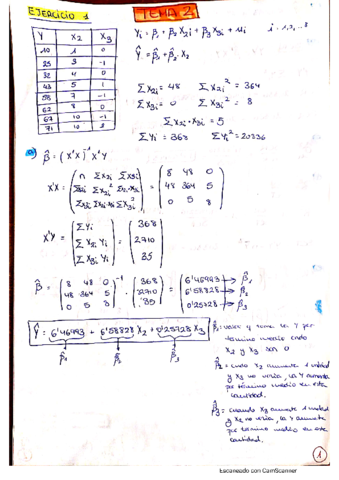 EJERCICIO 1
TEMA 2
Y X2 X3
10 1 0
25 3 -1
32 4 0
43 5 1
58 7 -1
62 8 0
67 10 -1
71 10 2
Yi = β1 + β2 X2i + β3 X3i + ui i = 1, 2, ...8
Ŷ = β̂1 + β̂2 X2
ΣX2i = 48 ΣX2i² = 364
ΣX3i = 0 ΣX3i² = 8
ΣX2i · X3i = 5
ΣYi = 368 ΣYi² = 20336
a) β̂ = (X'X)⁻¹ X'Y
X'X = ( n ΣX2i ΣX3i ) = ( 8 48 0 )
( ΣX2i ΣX2i² ΣX2i·X3i ) ( 48 364 5 )
( ΣX3i ΣX2i·X3i ΣX3i² ) ( 0 5 8 )
X'Y = ( ΣYi ) = ( 368 )
( ΣX2i Yi ) ( 2710 )
( ΣX3i Yi ) ( 35 )
β̂ = ( 8 48 0 )⁻¹ ( 368 ) = ( 6'46993 ) → β̂1
( 48 364 5 ) ( 2710 ) ( 6'58828 ) → β̂2
( 0 5 8 ) ( 35 ) ( 0'25728 ) → β̂3
Ŷ = 6'46993 + 6'58828 X2 + 0'25728 X3
β̂1 β̂2 β̂3
β̂1 = valor que toma la Y por
término medio cuando
X2 y X3 son 0
β̂2 = cuando X2 aumenta 1 unidad
y X3 no varía, la Y aumenta
por término medio en esta
cantidad.
β̂3 = cuando X3 aumenta 1 unidad
y X2 no varía, la Y aumenta
por término medio en esta
cantidad.
1
Escaneado con CamScanner